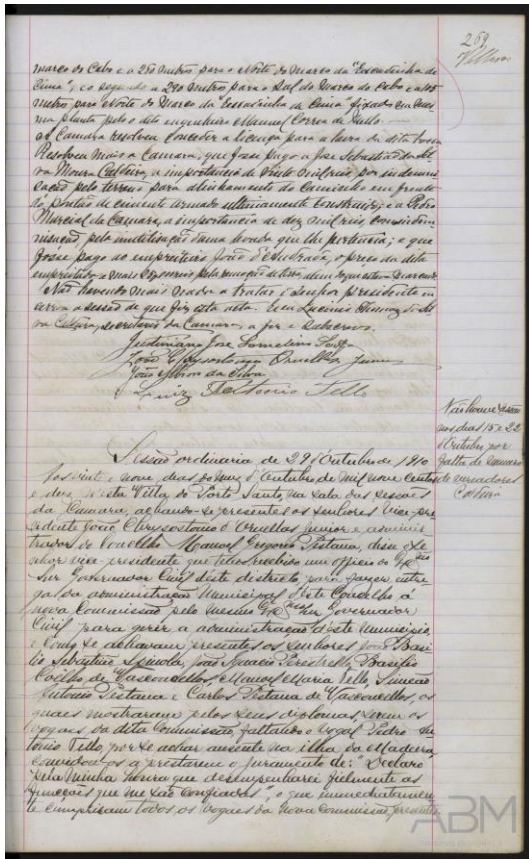 259
Velloza
março do Cabo e a 250 metros para o Norte do Marco da "Encadinha de
Cima"; e o segundo a 290 metros para o Sul do Marco do Cabo e a 105
metros para Norte do Marco da "Encadinha de Cima" fixado em
ma planta pelo dito engenheiro Manuel Correa de Mello.
A Camara resolveu conceder a licença para a lavra da dita
Resolveu mais a Camara, que fosse pago a Jose Sebastião da Sil
va Moura Caldeira, a importancia de vinte mil reis por indemni
sação pelo terreno para alinhamento do Caminho em frente
do pontão de cimento armado ultimamente construir; e a Pedro
Marcial da Camara, a importancia de dez mil reis, como indem
nisação, pela inutilisação duma levada que lhe pertencia; e que
fosse pago ao empreiteiro João d'Andrade, o preço da dita
empreitada e mais
Não havendo mais nada a tratar o senhor presidente en
cerrou a sessão de que fiz esta acta. E eu Lucinio da Sil
va Caldeira, secretario da Camara, a fiz e subscrevo.
João Chrysostomo Ornellas Junior
João da Silva
Luiz Teltonio Tello
Não houve sessão
nos dias 15 e 22
d'Outubro por
falta de numero
de vereadores
Caldeira
Sessão ordinaria de 29 d'Outubro de 1910
Aos vinte e nove dias do mez d'Outubro de mil nove centos
e dez n'esta Villa do Porto Santo, na sala das sessões
da Camara, achando-se presentes os senhores vice-pre
sidente João Chrysostomo d'Ornellas Junior e adminis
trador do Concelho Manoel Gregorio Pestana, disse o se
nhor vice-presidente que tendo recebido um officio do Ex.mo
Snr Governador Civil d'este districto para fazer entre
ga da administração Municipal d'este Concelho á
nova Commissão pelo mesmo Ex.mo Snr Governador
Civil para gerir a administração d'este Municipio,
e como se achavam presentes os senhores João Basi
lio Sebastião Spinola, João Ignacio Perestrello, Basilio
Coelho de Vasconcellos, Manoel Maria Tello, Simeão
Antonio Pestana e Carlos Pestana de Vasconcellos, os
quaes mostraram pelos seus diplomas serem os
vogaes da dita Commissão, faltando o vogal Pedro An
tonio Tello por se achar ausente na ilha da Madeira,
convidou-os a prestarem o juramento de: "Declaro
pela minha honra que desempenharei fielmente as
funcções que me são confiadas", o que immediatamen
te cumpriram todos os vogaes da nova Commissão presentes.
ABM